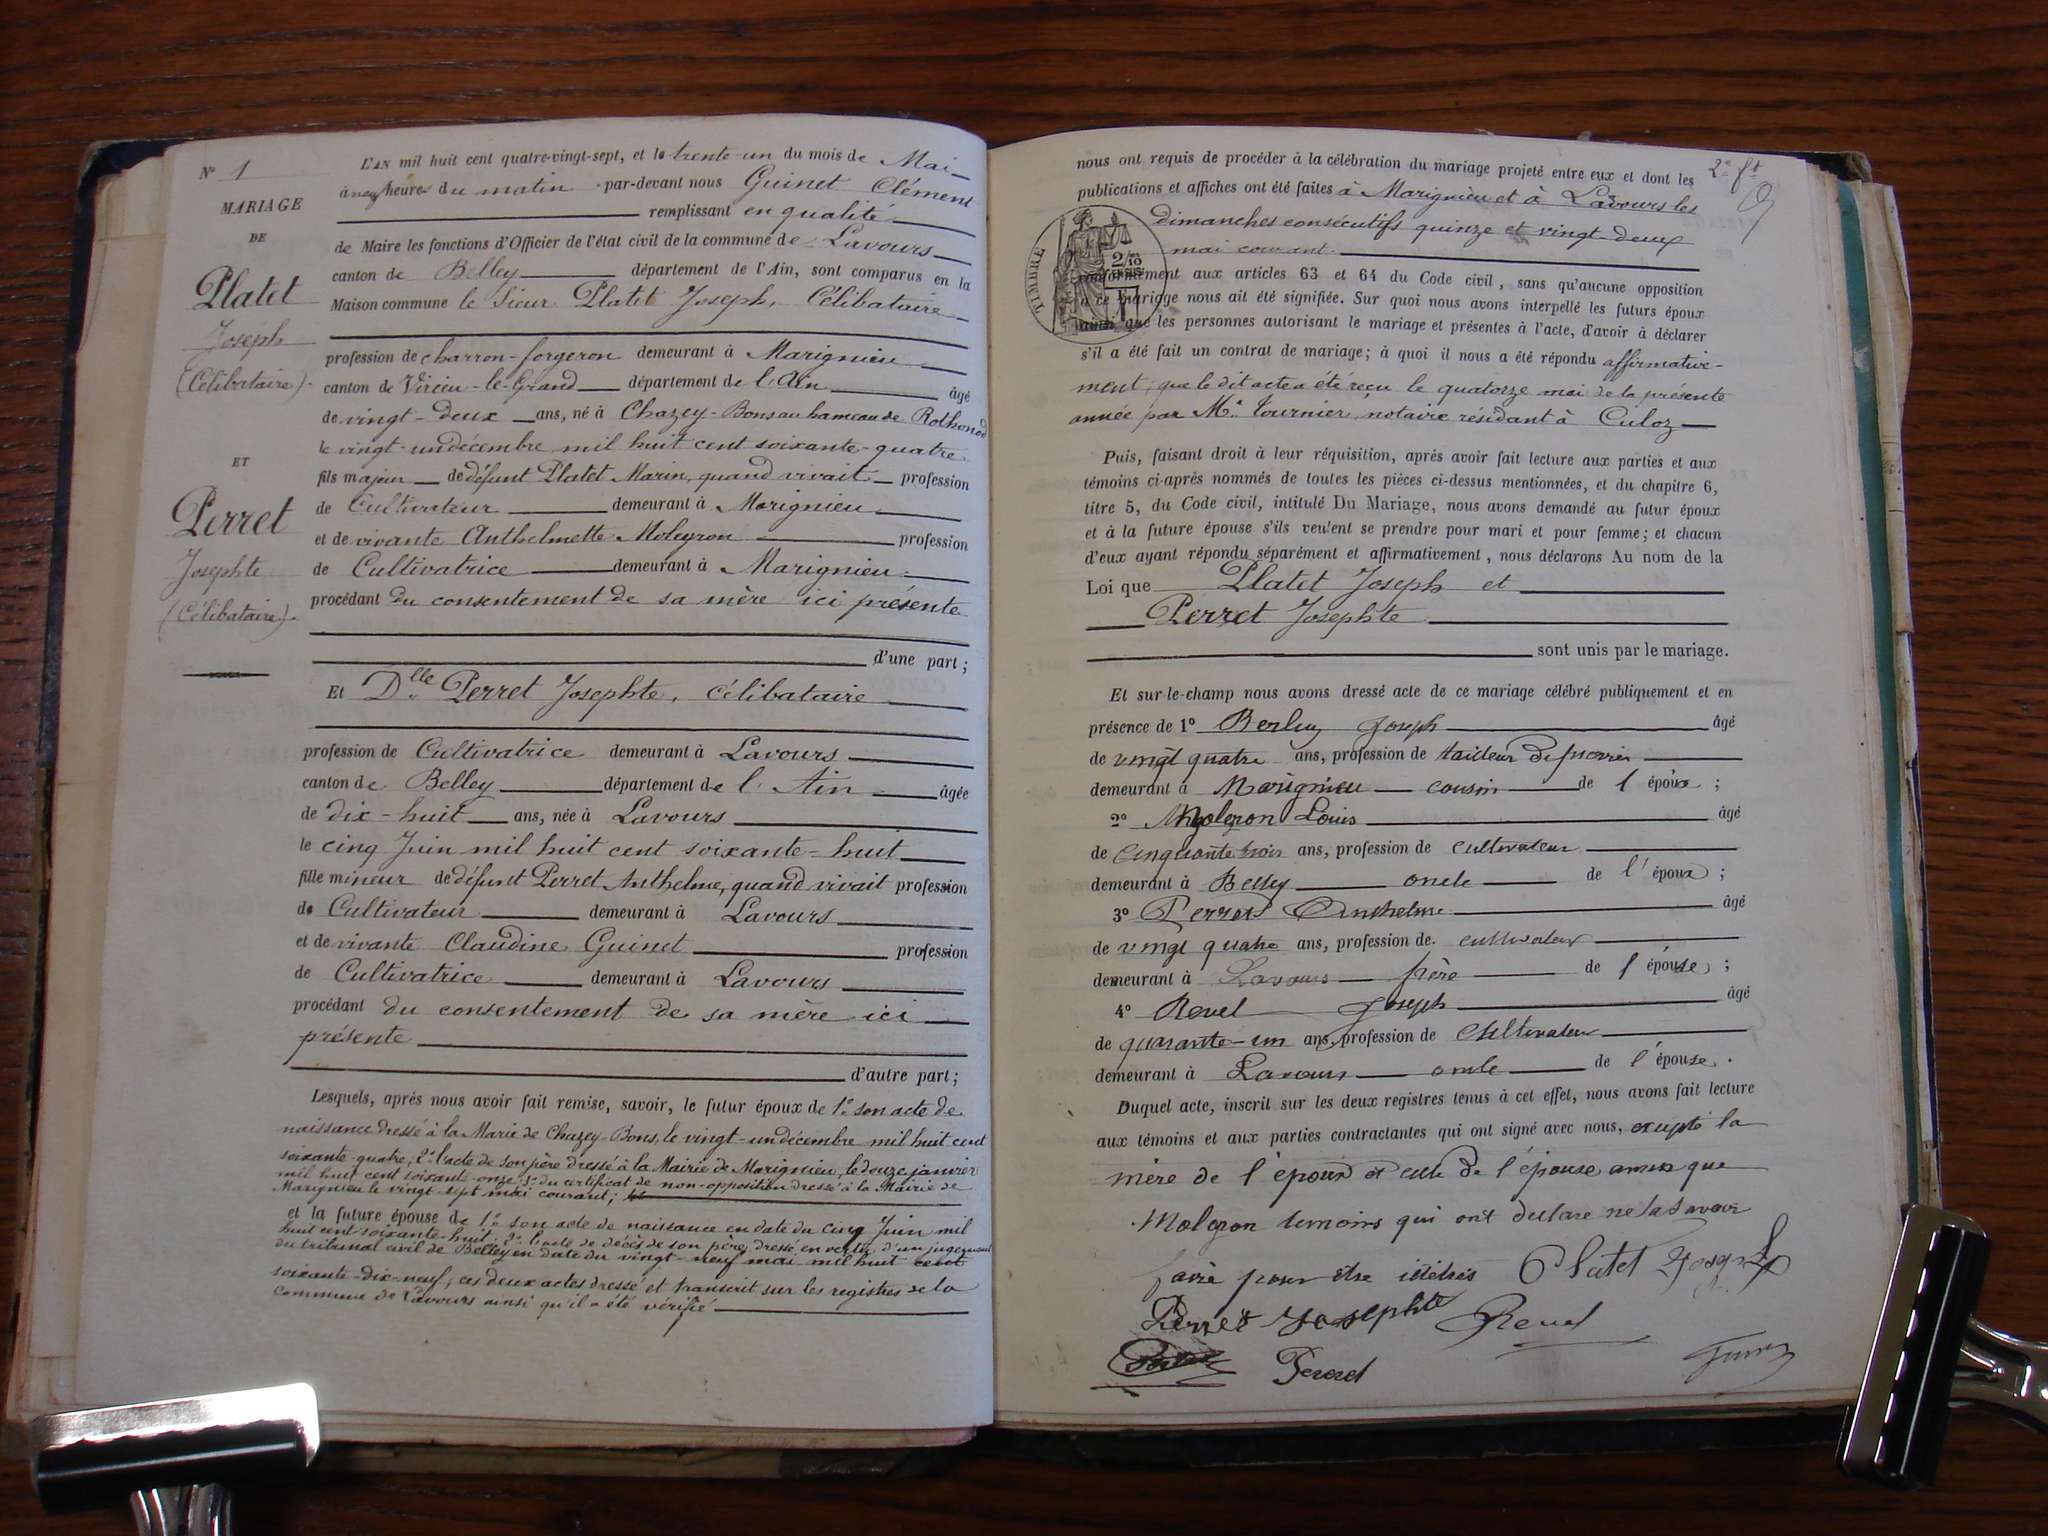 N° 1
MARIAGE
DE
Platet
Joseph
(Célibataire).
ET
Perret
Josephte
(Célibataire).
L'AN mil huit cent quatre-vingt-sept, et le trente-un du mois de Mai
à neuf heures du matin par-devant nous Guinet Clément
remplissant en qualité
de Maire les fonctions d'Officier de l'état civil de la commune de Lavours
canton de Belley département de l'Ain, sont comparus en la
Maison commune le Sieur Platet Joseph, Célibataire
profession de charron-forgeron demeurant à Marignieu
canton de Virieu-le-Grand département de l'Ain âgé
de vingt-deux ans, né à Chazey-Bons au hameau de Rothonod
le vingt-un décembre mil huit cent soixante-quatre
fils majeur de défunt Platet Marin, quand vivait profession
de Cultivateur demeurant à Marignieu
et de vivante Anthelmette Moleyron profession
de Cultivatrice demeurant à Marignieu
procédant du consentement de sa mère ici présente
d'une part ;
Et Dlle Perret Josephte, Célibataire
profession de Cultivatrice demeurant à Lavours
canton de Belley département de l'Ain âgée
de dix-huit ans, née à Lavours
le cinq Juin mil huit cent soixante-huit
fille mineur de défunt Perret Anthelme, quand vivait profession
de Cultivateur demeurant à Lavours
et de vivante Claudine Guinet profession
de Cultivatrice demeurant à Lavours
procédant du consentement de sa mère ici
présente
d'autre part ;
Lesquels, après nous avoir fait remise, savoir, le futur époux de 1° son acte de
naissance dressé à la Marie de Chazey-Bons, le vingt-un décembre mil huit cent
soixante-quatre; 2° l'acte de son père dressé à la Mairie de Marignieu, le douze janvier
mil huit cent soixante-onze; 3° du certificat de non-opposition dressé à la Mairie de
Marignieu le vingt-sept mai courant;
et la future épouse de 1° son acte de naissance en date du cinq Juin mil
huit cent soixante-huit; 2° l'acte de décès de son père dressé en vertu d'un jugement
du tribunal civil de Belley en date du vingt-neuf mai mil huit cent
soixante-dix-neuf; ces deux actes dressé et transcrit sur les registres de la
commune de Lavours ainsi qu'il a été vérifié
2e ft
nous ont requis de procéder à la célébration du mariage projeté entre eux et dont les
publications et affiches ont été faites à Marignieu et à Lavours les
dimanches consécutifs quinze et vingt-deux
mai courant.
TIMBRE
2/10
conformément aux articles 63 et 64 du Code civil, sans qu'aucune opposition
à ce mariage nous ait été signifiée. Sur quoi nous avons interpellé les futurs époux
ainsi que les personnes autorisant le mariage et présentes à l'acte, d'avoir à déclarer
s'il a été fait un contrat de mariage; à quoi il nous a été répondu affirmative-
ment, que le dit acte a été reçu le quatorze mai de la présente
année par Me Tournier, notaire résidant à Culoz
Puis, faisant droit à leur réquisition, après avoir fait lecture aux parties et aux
témoins ci-après nommés de toutes les pièces ci-dessus mentionnées, et du chapitre 6,
titre 5, du Code civil, intitulé Du Mariage, nous avons demandé au futur époux
et à la future épouse s'ils veulent se prendre pour mari et pour femme; et chacun
d'eux ayant répondu séparément et affirmativement, nous déclarons Au nom de la
Loi que Platet Joseph et
Perret Josephte
sont unis par le mariage.
Et sur-le-champ nous avons dressé acte de ce mariage célébré publiquement et en
présence de 1° Joseph âgé
de vingt quatre ans, profession de tailleur de pierres
demeurant à Marignieu cousin de l'époux ;
2° Moleyron Louis âgé
de cinquante trois ans, profession de cultivateur
demeurant à Belley oncle de l'époux ;
3° Perret Anthelme âgé
de vingt quatre ans, profession de cultivateur
demeurant à Lavours frère de l'épouse ;
4° Revel Joseph âgé
de quarante-un ans, profession de cultivateur
demeurant à Lavours oncle de l'épouse.
Duquel acte, inscrit sur les deux registres tenus à cet effet, nous avons fait lecture
aux témoins et aux parties contractantes qui ont signé avec nous, excepté la
mère de l'époux et celle de l'épouse ainsi que
Moleyron témoins qui ont déclaré ne la savoir
faire pour être illétrés Platet Joseph
Perret Josephte Revel
Perret